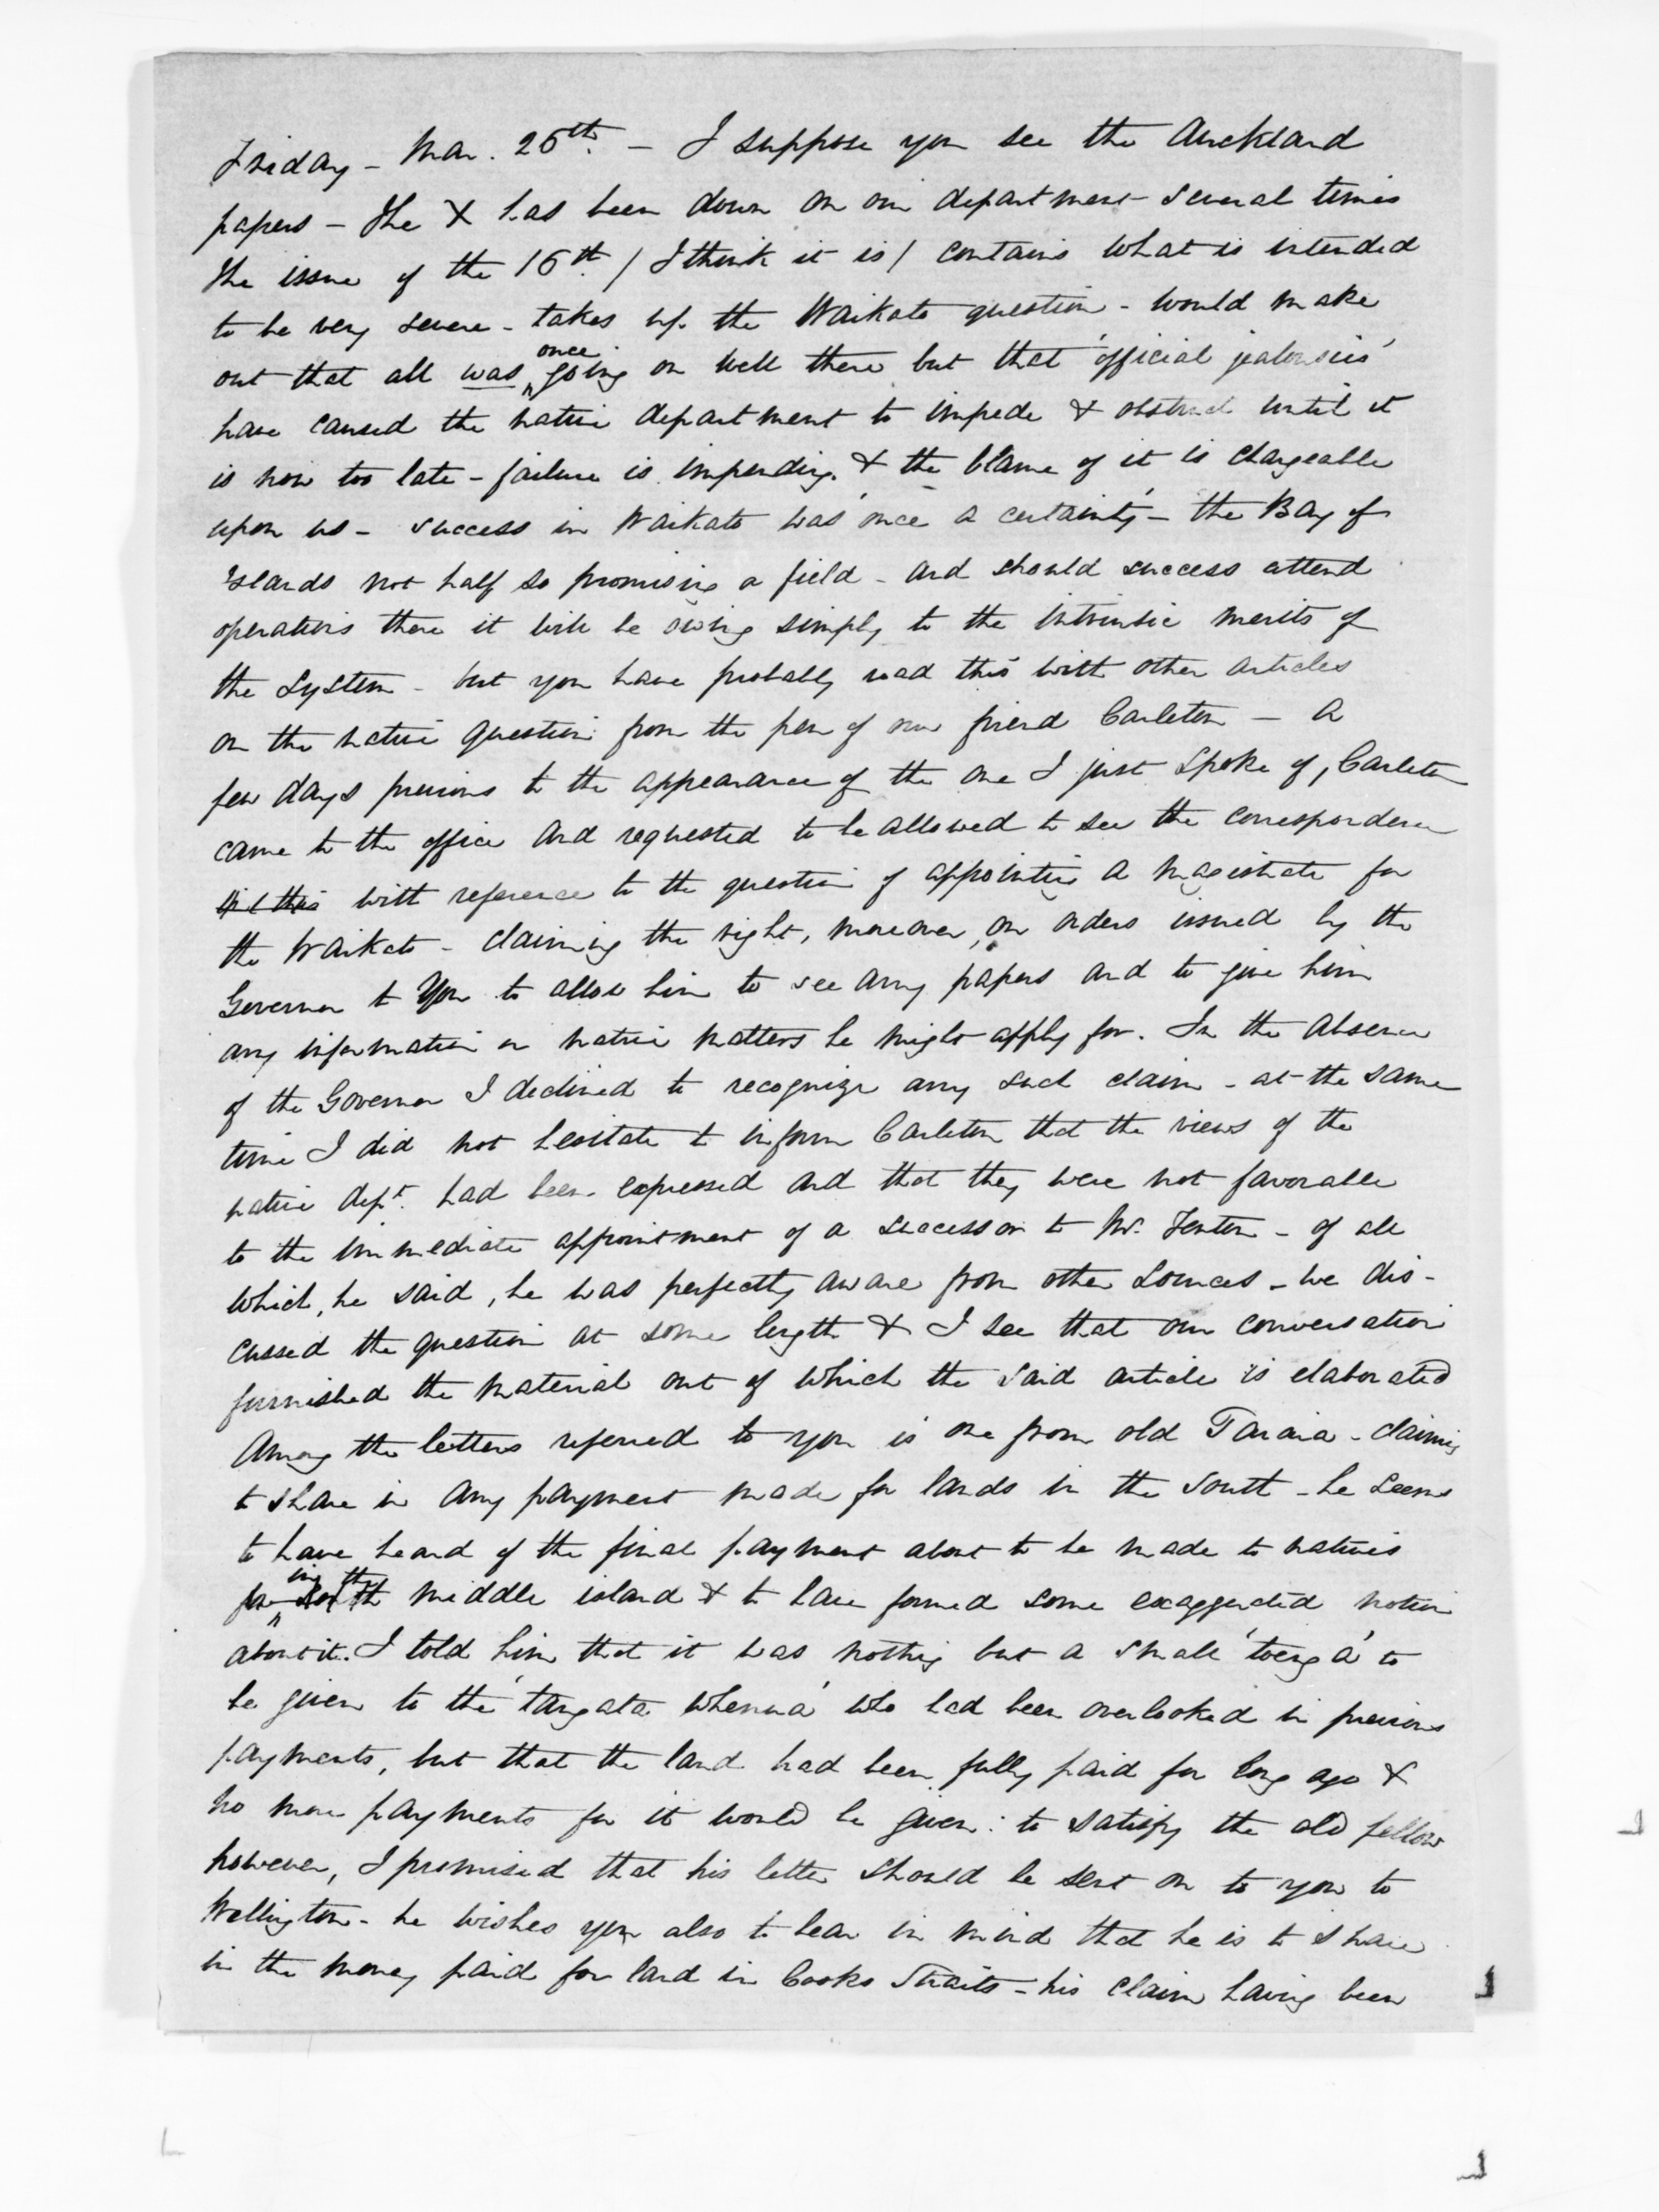 Friday - Mar. 25th. - I suppose you see the Auckland
papers - The X has been down on our department several times
the issue of the 16th. / I think it is / contains what is intended
to be very severe - takes up the Waikato question - would make
out that all was once going on well there but that 'official jealousies'
have caused the native department to impede & obstruct until it
is now too late - failure is impending & the blame of it is chargeable
upon us - success in Waikato was 'once a certainty' - the Bay of
Islands not half so promising a field - and should success attend
operations there it will be owing simply to the intrinsic merits of
the system - but you have probably read this with other articles
on the native question from the pen of our friend Carleton - A
few days previous to the appearance of the one I just spoke of, Carleton
came to the office and requested to be allowed to see the correspondence
with reference to the question of appointing a Magistrate for
the Waikato - claiming the right, moreover, on orders issued by the
Governor to you to allow him to see any papers and to give him
any information on native matters he might apply for. In the absence
of the Governor I declined to recognize any such claim - at the same
time I did not hesitate to inform Carleton that the views of the
native dept. had been expressed and that they were not favorable
to the immediate appointment of a successor to Mr. Fenton - of all
which, he said, he was perfectly aware from other sources - we dis-
cussed the question at some length & I see that our conversation
furnished the material out of which the said article is elaborated
Among the letters referred to you is one from old Taraia - claiming
to share in any payment made for lands in the South - he seems
to have heard of the final payment about to be made to natives
in the middle island & to have formed some exaggerated notion
about it. I told him that it was nothing but a small 'toenga' to
be given to the 'tangata whenua' who had been overlooked in previous
payments, but that the land had been fully paid for long ago &
no more payments for it would be given: to satisfy the old fellow
however, I promised that his letter should be sent on to you to
Wellington - he wishes you also to bear in mind that he is to share
in the money paid for land in Cooks Straits - his claim having been